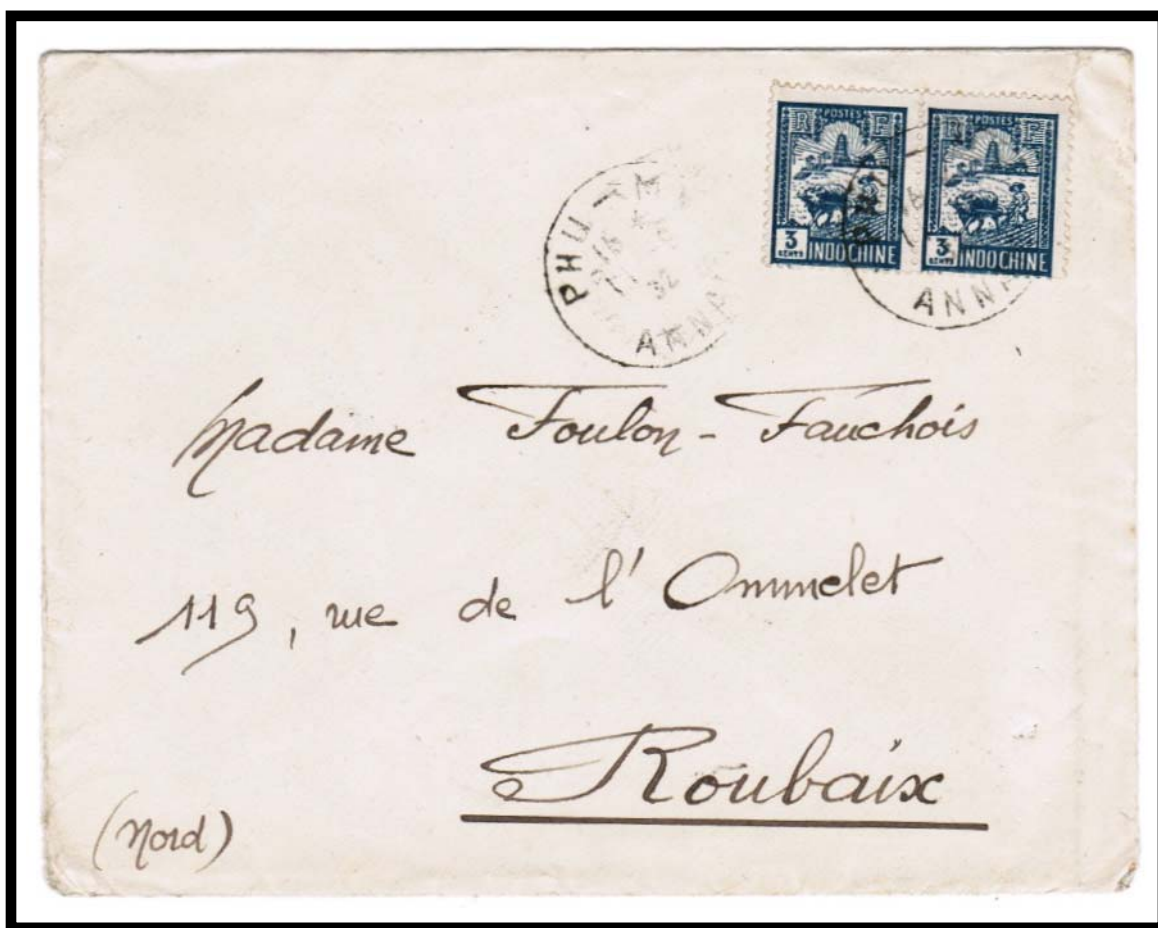 POSTES POSTES
R F R F
3 CENTS INDOCHINE 3 CENTS INDOCHINE
PHU
32
ANNAM
ANNA
Madame Foulon - Fauchois
119, rue de l'Ommelet
Roubaix
(Nord)